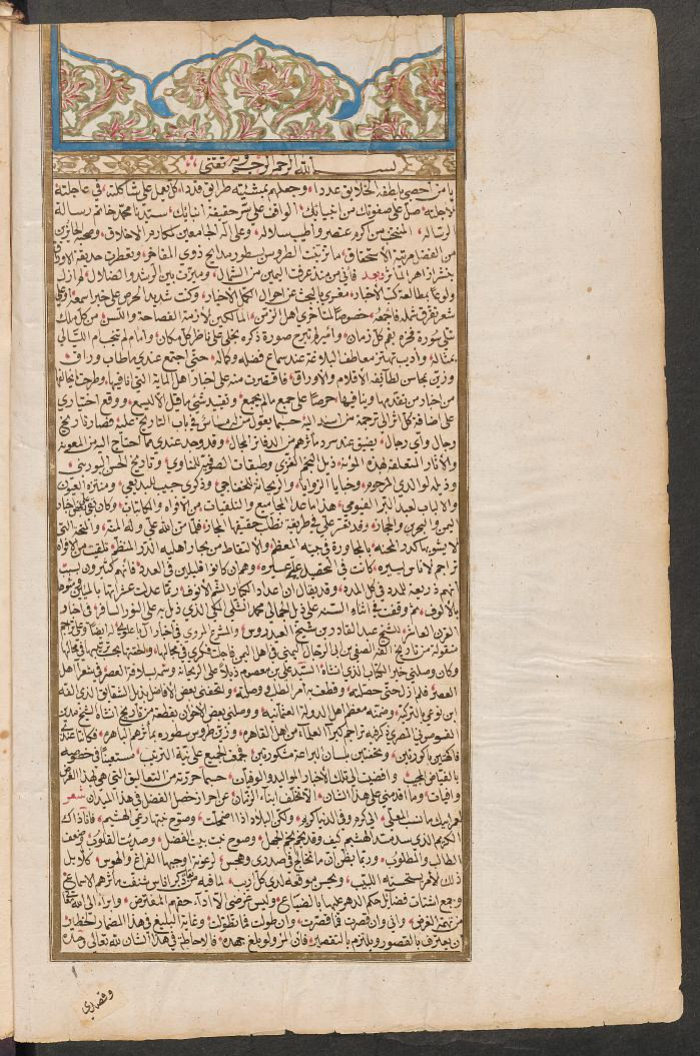 بسم الله الرحمن الرحيم وبه ثقتي
يا من احصى بلطفه الخلايق عددا، وجعلهم بمشيئته طرايق قددا، كل يعمل على شاكلته، في عاجلته
لاجلته، صل على صفوتك من احبائك، الواقف على سر حقيقة انبائك، سيدنا محمد خاتم رسالة
الرسالة، المنتخب من اكرم عنصر واطيب سلالة، وعلى آله الجامعين لمكارم الاخلاق، وصحبه الحائزين
من الفضل مرتبة الاستحقاق، ما زينت الطروس سطور مدايح ذوي المفاخر، وتعطرت حديقة الاوراق
بنشر ازاهر المآثر وبعد فاني من منذ عرفت اليمين من الشمال، وميزت بين الرشد والضلال لم ازل
ولوعا بمطالعة كتب الاخبار، مغرى بالبحث عن احوال الكمل الاخيار، وكنت شديد الحرص على خبر اسمعه او على
شعر تفرق شمله فاجمعه، خصوصا لمتاخري اهل الزمن، المالكين لازمة الفصاحة واللسن، من كل ملك
تتلى سورة فخره بفم كل زمان، وامير لم تبرح صورة ذكره تجلى على ناظر كل مكان، وامام لم تنجب ام الليالي
بمثاله، واديب تهتز معاطف البلاغة عند سماع فضله وكماله، حتى اجتمع عندي ما طاب وراق
وزين بمحاسن لطائفه الاقلام والاوراق، فاقتصرت منه على اخبار اهل المائة التي انا فيها، وطرحت ما يخالفها
من اخبار من تقدمها وينافيها، حرصا على جمع ما لم يجمع، وتقييد شي ما قيل الا ليسمع، ووقع اختياري
على اضافة كل اثر الى ترجمة من اسند اليه، حسبما يعول من له مساس في باب التاريخ عليه، فصار تاريخ
رجال واي رجال، يضيق عند سرد مآثرهم من الدفاتر المجال، وقد وجد عندي مما احتاج اليه من المعونة
والآثار المتعلقة بهذه المؤنة، ذيل النجم الغزي وطبقات الصوفية للمناوي، وتاريخ الحسن البوريني
وذيله لوالدي المرحوم، وخبايا الزوايا، والريحانة للخفاجي، وذكرى حبيب للبديعي، ومنتزه العيون
والالباب لعبد البر الفيومي، هذا ما عدا المجاميع والتلقيات من الافواه والمكاتبات، وكان بقي علي اخبار
اليمن والبحرين والحجاز، وقد تعسر علي في طريقة تطلب حقيقتها المجاز، فلما من الله علي وله المنة، والنحلة التي
لا يشوبها كدر المحنة، بالمجاورة في بيته المعظم، والالتقاط من بحار اهليه الدر المنظم، تلقيت من الافواه
تراجم لاناس يسيره، كانت في التحقيق علي عسيره، وهم وان كانوا قليلين في العدد، فانهم كثيرون بسبب
انهم ذريعة للمدد في كل المدد، وقد يقال ان اعداد الكمار الشم الانوف، ربما عدلت عشراتها بالميات
بالالوف، ثم وقفت في اثناء السنة على ذيل الجمالي محمد الشلي المكي الذي ذيل به على النور السافر، في اخبار
القرن العاشر، للشيخ عبد القادر بن شيخ العيدروس، والمشرع الروي في اخبار آل باعلوي له ايضا، وعلى تراجم
منقولة من تاريخ الصفي بن ابي الرجال اليمني في اهل اليمن، فاجلت فكري في مجالها، والحقتها
وكان وصلني خبر الكتاب الذي انشاه السيد علي بن معصوم ذيلا على الريحانة وسمه بسلافة العصر، في شعراء اهل
العصر، فلم ازل حتى حصلته، وقطعت به امر الطلب وصلته، واتحفني بعض الافاضل بذيل الشقايق الذي الفه
ابن نوعي بالتركية، وضمنه معظم اهل الدولة العثمانية، ووصلني بعض الاخوان بقطعة من تاريخ انشاه الشيخ مدين
القوصوني المصري ذكر فيه تراجم كبراء العلماء من اهل القاهرة، وزين طروس سطوره بمآثرهم الباهرة، فكانتا عندي
فاكهتين باكورتين، وتحفتين بلسان البراعة مشكورتين، فجمعت الجميع على نية الترتيب، مستعينا في خصوصه
بالقياض المجيب، واضفت الى تلك الاخبار المواليد والوفيات، حسبما حررته من التعاليق التي هي بهذا الغرض
وافيات، وما اقدمني على هذا الشان، الا تخلف ابناء الزمان، عن احراز خصل الفضل في هذا الميدان شعر
لعمر ابيك ما نسب المعلى، الى كرم وفي الدنيا كريم، ولكن البلاد اذا اضمحلت، وصوح نبتها رعي الهشيم، فانا ذاك
الكريم الذي سد مسد الهشيم، كيف وقد نجم نجم الجهل، وصوح نبت بين الفضل، وصديت القلوب، وضعف
الطالب والمطلوب، وربما يظن ان ما تخالج في صدري وهجس، لرعونة اوجبها الفراغ والهوس، كلا بل
ذلك لامر يستحسنه اللبيب، ويحسن موقعه لدى كل اديب، لما فيه من ذكر اناس شنفت مآثرهم الاسماع
وجمع اشتات فضائل حكم الدهر عليها بالضياع، وليس غرضي الا اداء حقهم المفترض، وابراء الى الله
من تهمة الغرض، واني وان قصرت فما اقصرت، وان طولت فما تطولت، وغاية البليغ في هذا المضمار الخطار
ان يعترف بالقصور ويلتزم بالتقصير، فان المرء ولو بلغ جهده، فالاحاطة في هذا الشان لله تعالى وحده
وقصاري